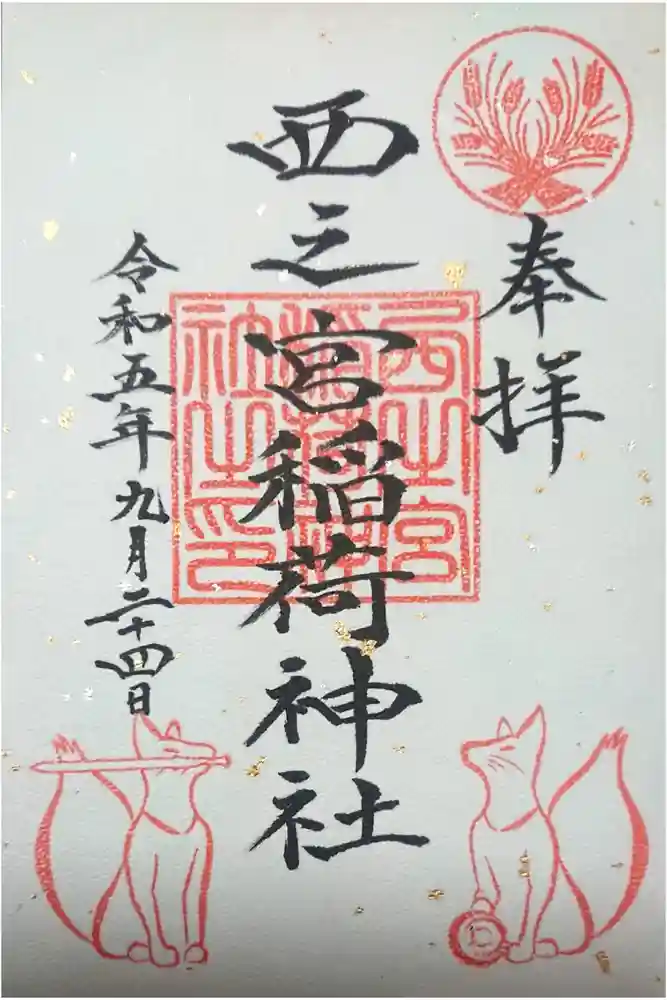 奉拝
西之宮稲荷神社
西之宮稲荷神社之印
令和五年九月二十四日